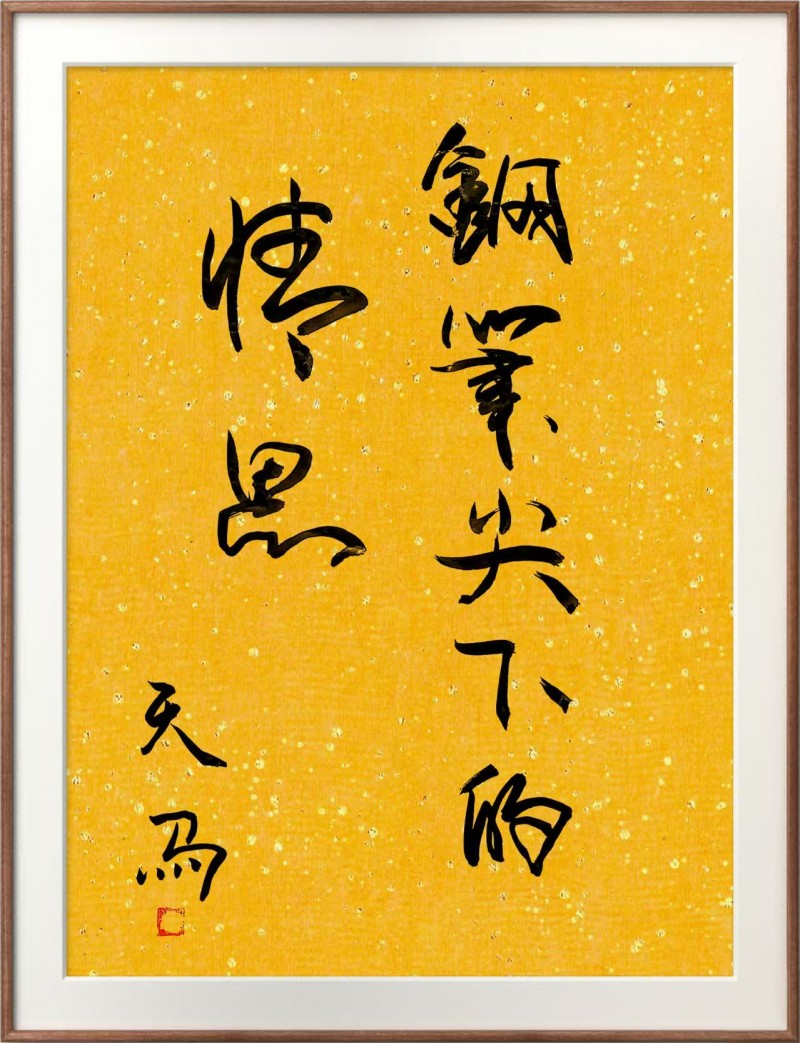 鋼筆尖下的
情思
天马